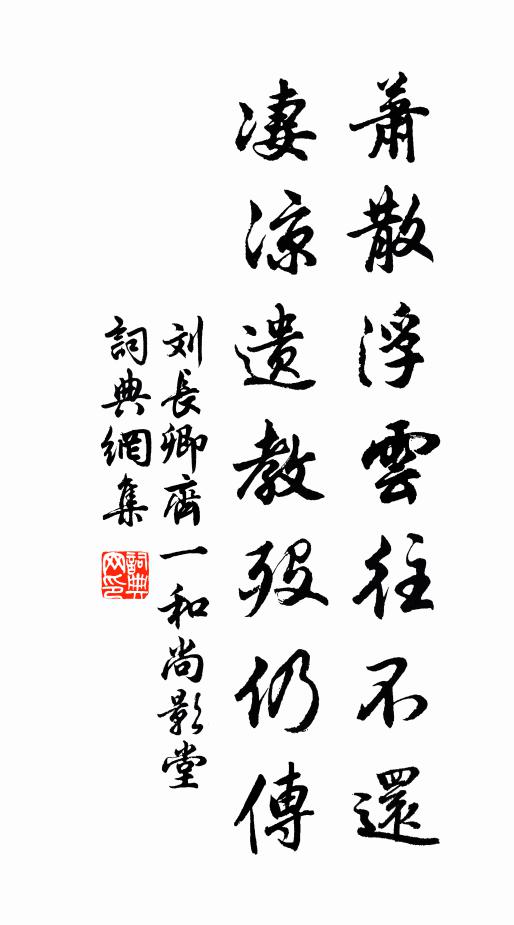 蕭散浮雲往不還
淒涼遺教歿仍傳
刘長卿齊一和尚影堂
詞典網集
詞典
网印